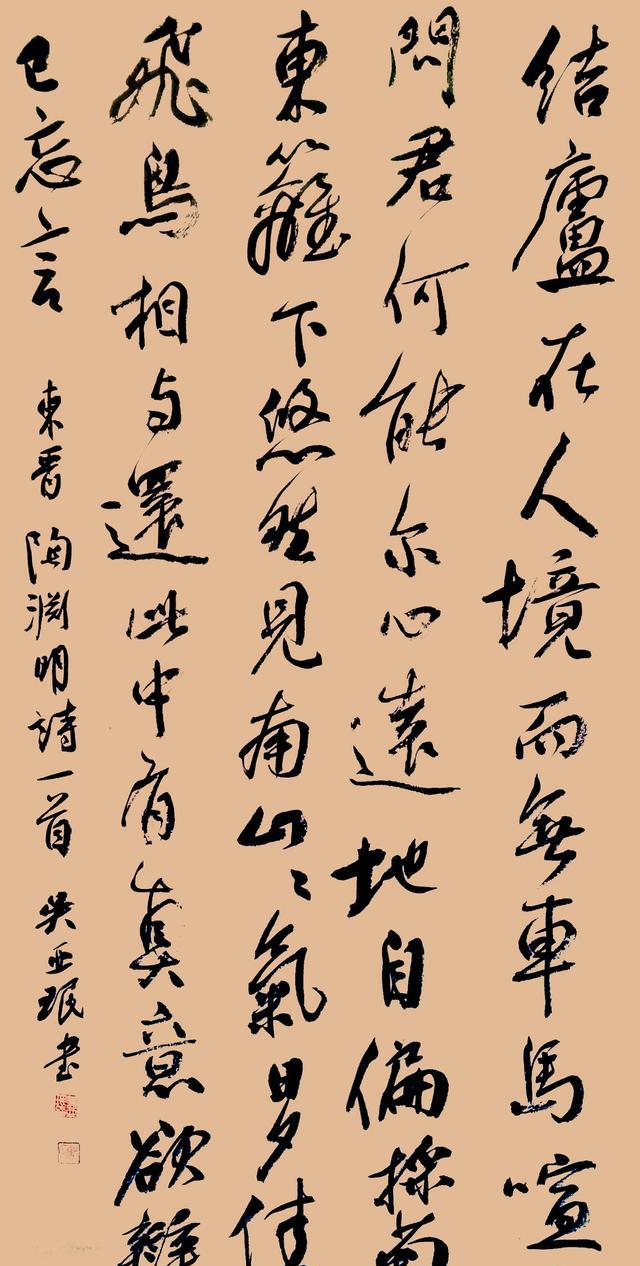 結廬在人境而無車馬喧
問君何能尔心遠地自偏採菊
東籬下悠然見南山〻氣日夕佳
飛鳥相与還此中有真意欲
已忘言 東晋陶渊明詩一首 吴亚珉书